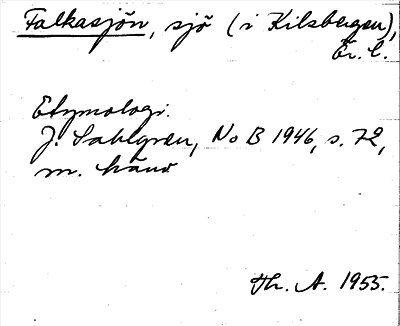 Falkasjön, sjö (i Kilsbergen),
Er. l.
Etymologi.
J. Sahlgren, NoB 1946, s. 72,
m. hänv
Hr. A. 1955.